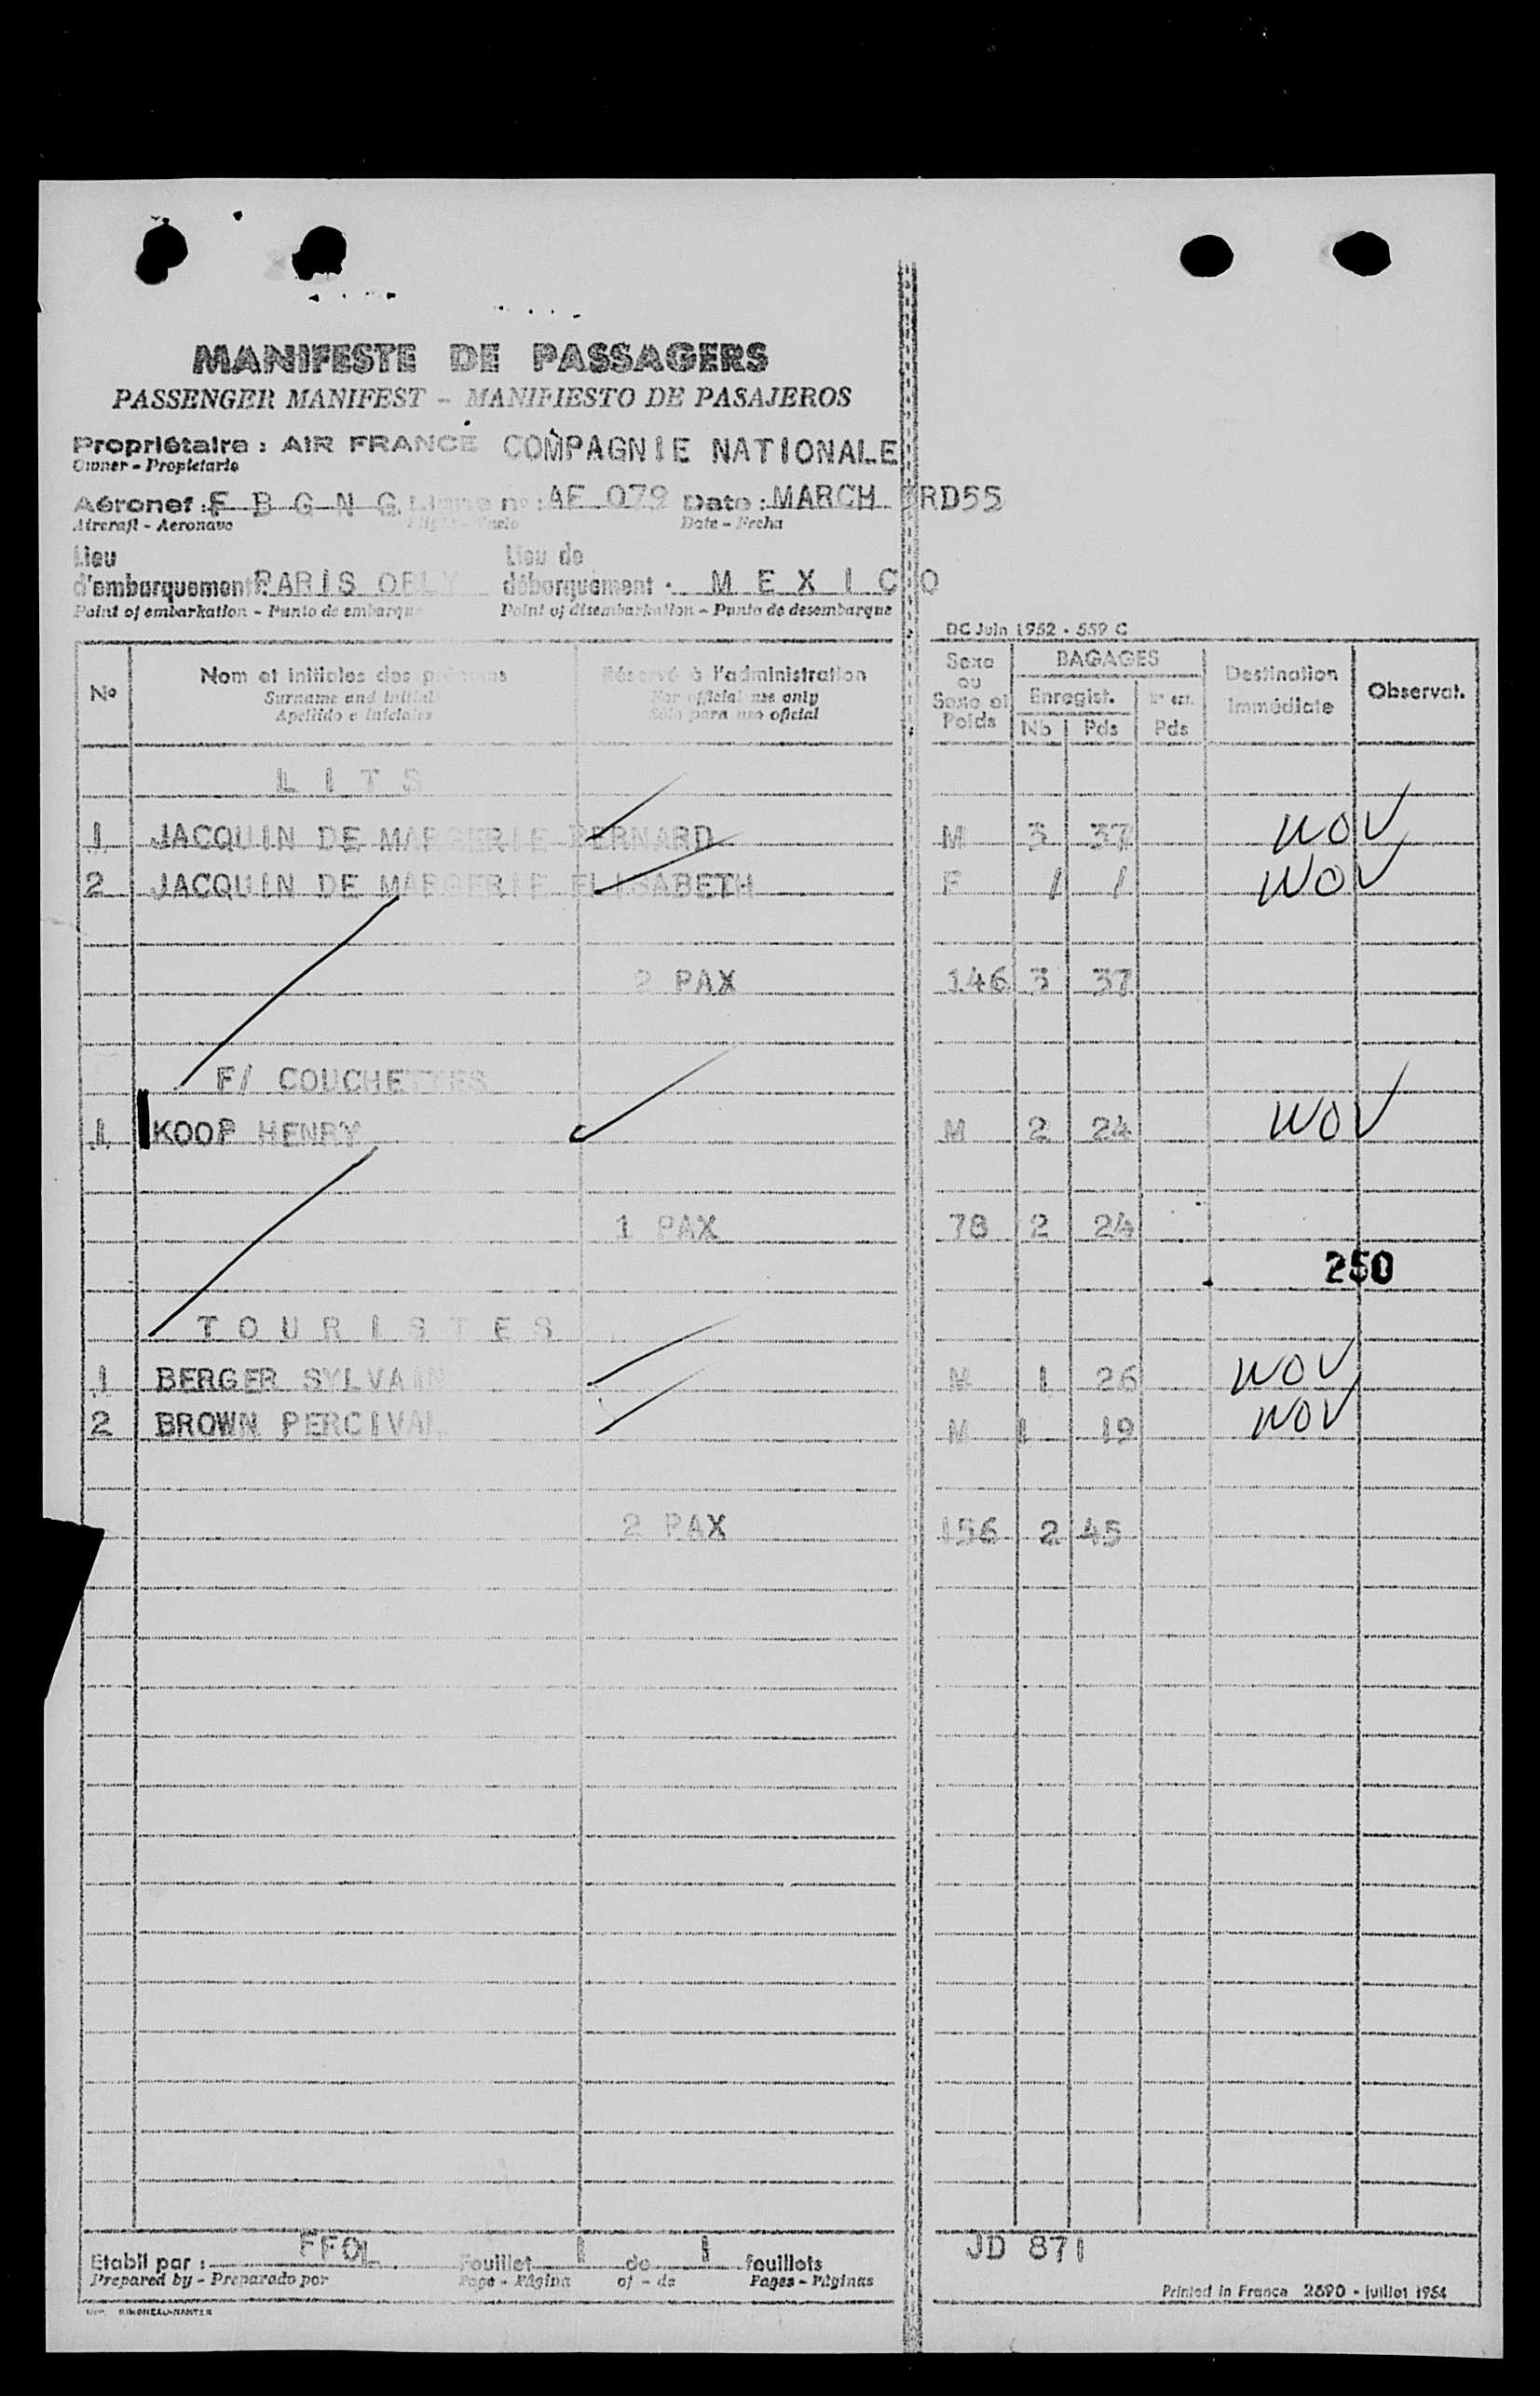 MANIFESTE DE PASSAGERS
PASSENGER MANIFEST - MANIFIESTO DE PASAJEROS
Propriétaire : AIR FRANCE COMPAGNIE NATIONALE
Owner - Propietario
Aéronef : F B G N G Ligne n° : AF 079 Date : MARCH 3RD55
Aircraft - Aeronave Flight - Vuelo Date - Fecha
Lieu d'embarquement : PARIS ORLY Lieu de débarquement : M E X I C O
Point of embarkation - Punto de embarque Point of disembarkation - Punto de desembarque
DC Juin 1952 - 559 C
N° Nom et initiales des prénoms Réservé à l'administration Sexe ou Sexe et Poids BAGAGES Destination immédiate Observat.
Surname and initials For official use only Enregist.
Apellido e iniciales Sólo para uso oficial Nb Pds Pds
L I T S
1 JACQUIN DE MARGERIE BERNARD M 3 37 NOV
2 JACQUIN DE MARGERIE ELISABETH F / / NOV
2 PAX 146 3 37
F/ COUCHETTES
1 KOOP HENRY M 2 24 NOV
1 PAX 78 2 24
250
T O U R I S T E S
1 BERGER SYLVAIN M 1 26 NOV
2 BROWN PERCIVAL M 1 19 NOV
2 PAX 156 2 45
Etabli par : FFOL Feuillet 1 de 1 feuillets JD 871
Prepared by - Preparado por Page - Página of - de Pages - Páginas
Printed in France 2690 - juillet 1954